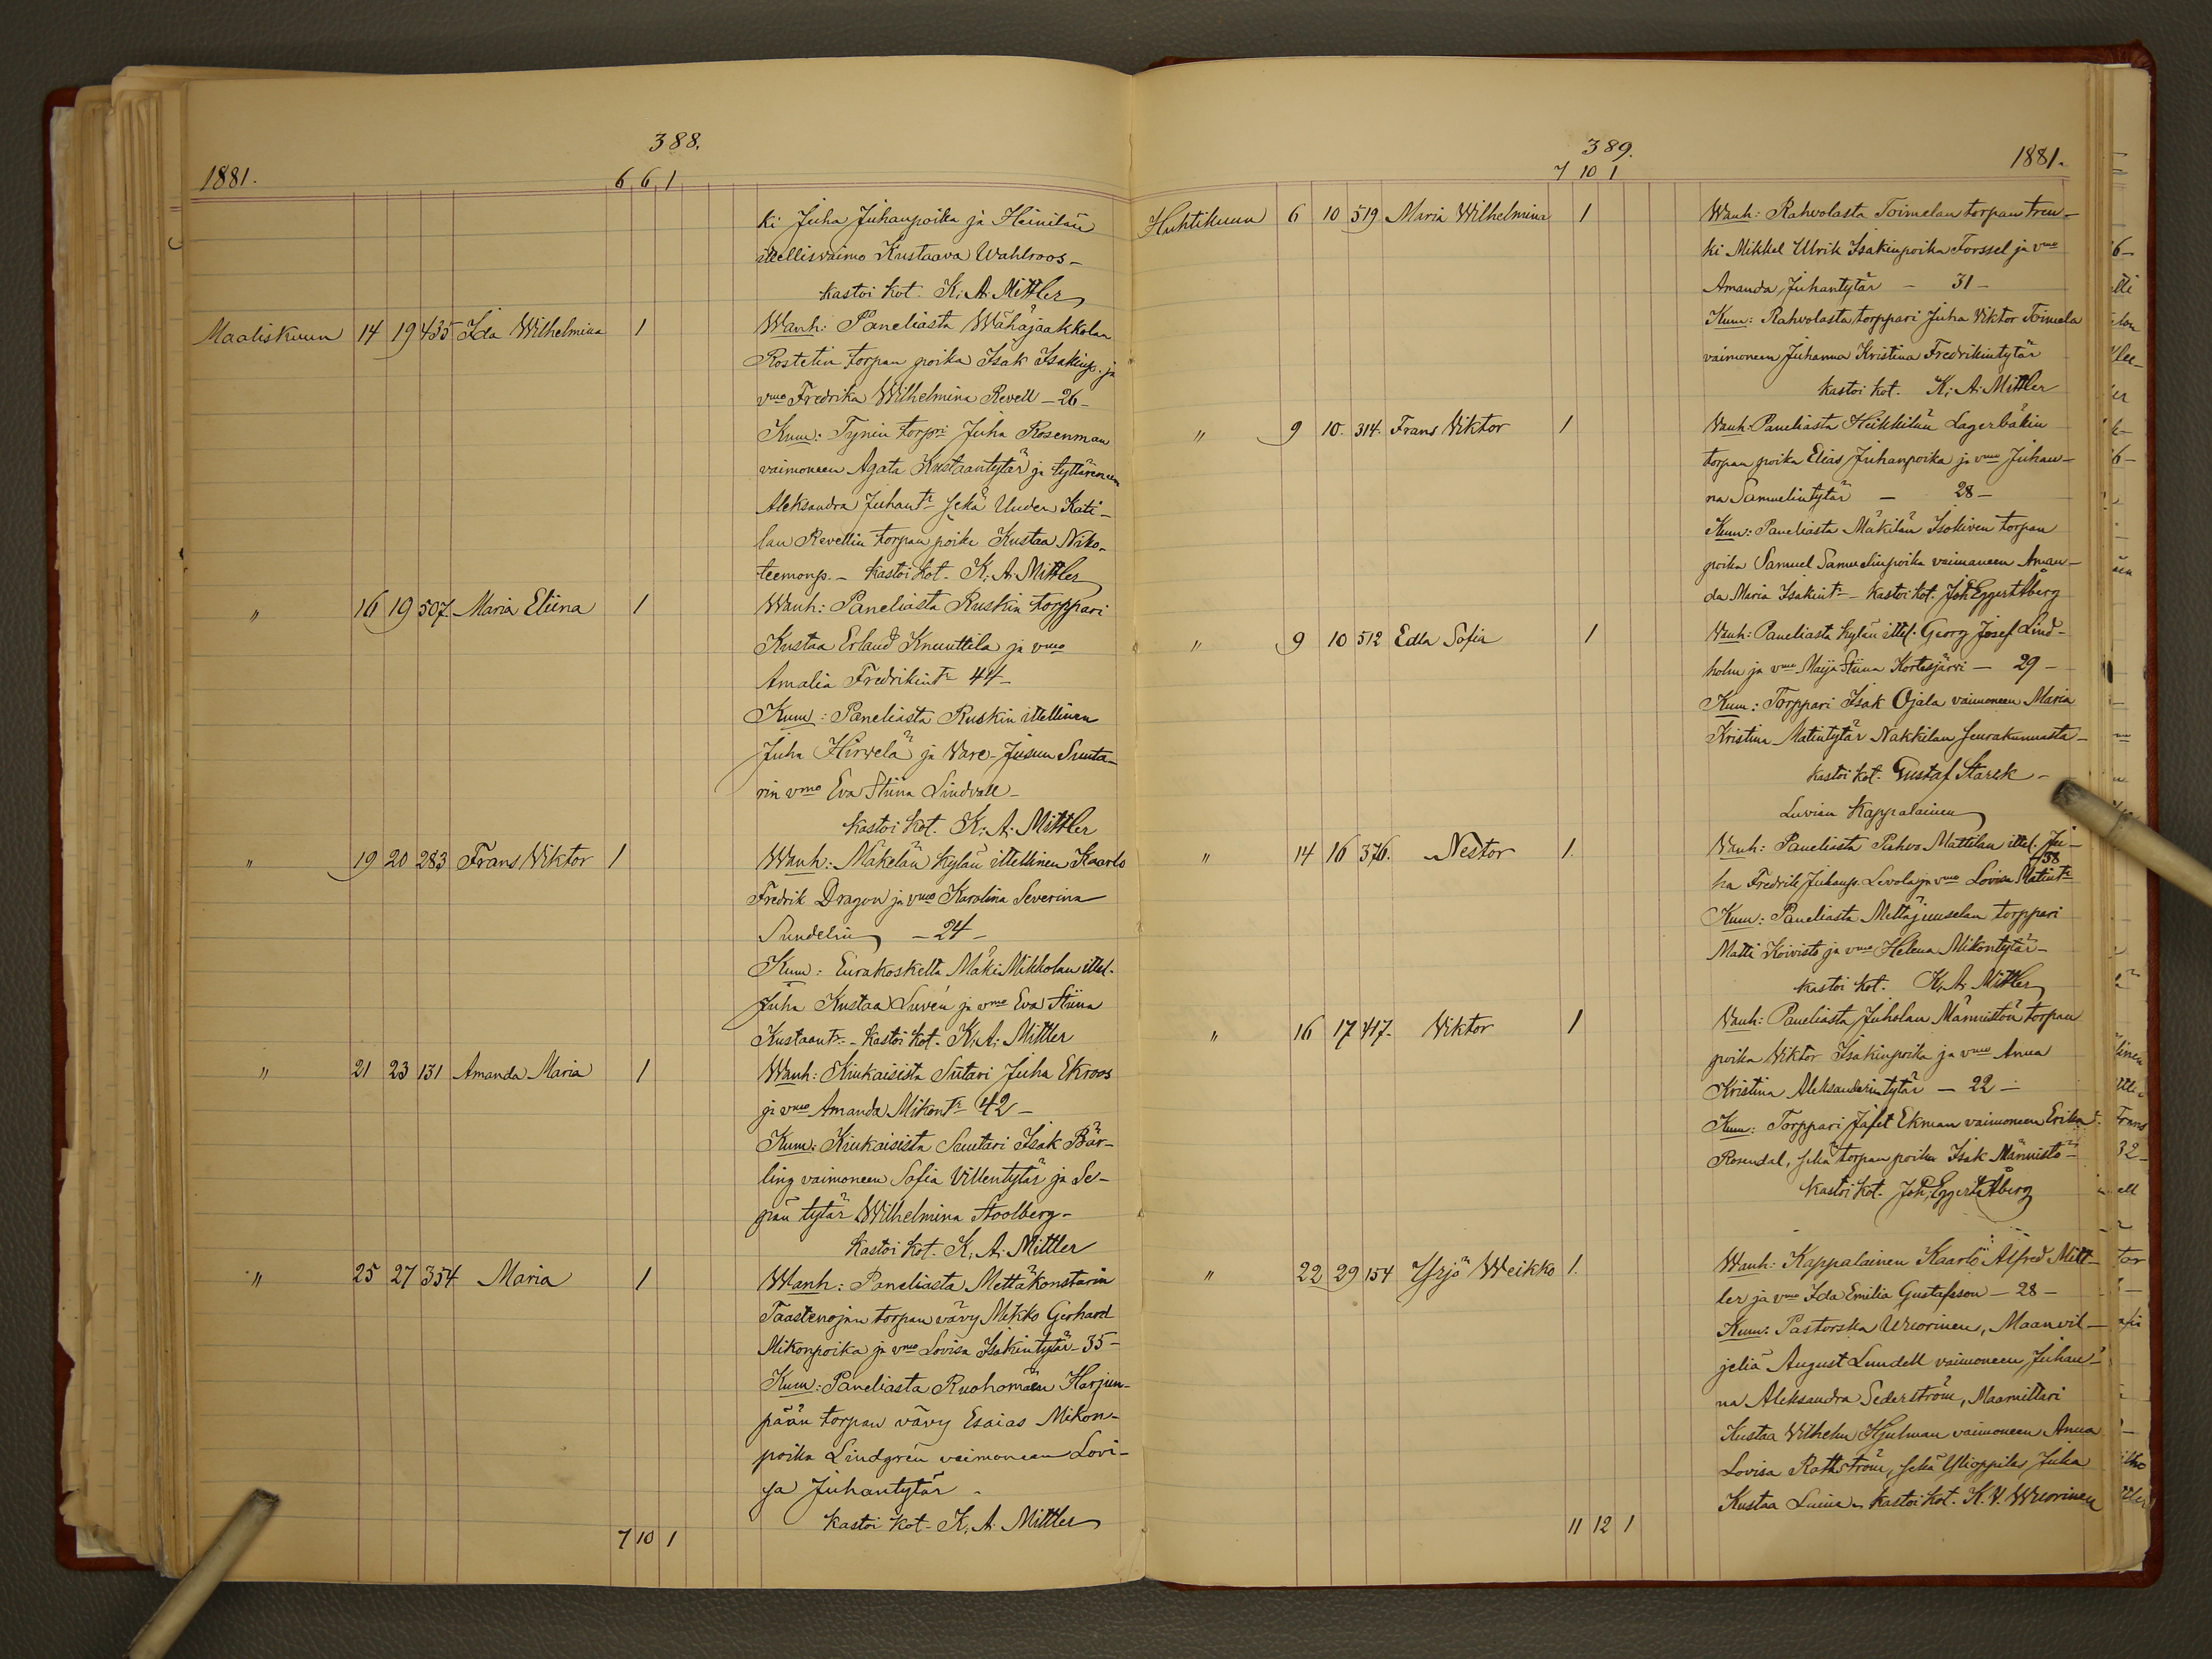 388.
1881.
6 6 1
ki Juha Juhanpoika ja Heinilän
ittellisvaimo Kustaava Wahlroos –
kastoi kot. K. A. Mittler
Maaliskuun 14 19 435 Ida Wilhelmina 1 Wanh: Paneliasta Wähäjaakkolan
Rostetin torpan poika Isak Isakinp. ja
vmo Fredrika Wilhelmina Revell – 26 –
Kum: Tynin torpri Juha Rosenman
vaimoneen Agata Kustaantytär ja tyttärensä
Aleksandra Juhantr sekä Uuden Kati-
lan Revellin torpan poika Kustaa Niko-
teemonp. – kastoi kot. K. A. Mittler
" 16 19 507. Maria Eliina 1 Wanh: Paneliasta Ruskin torppari
Kustaa Erland Knuuttila ja vmo
Amalia Fredrikintr 44 –
Kum: Paneliasta Ruskin ittellinen
Juha Hirvelä ja Vare-Jussun Suuta-
rin vmo Eva Stiina Lindvall –
kastoi kot. K. A. Mittler
" 19 20 283 Frans Viktor 1 Wanh: Mäkelän kylän ittellinen Kaarlo
Fredrik Dragon ja vmo Karolina Severina
Sundelin – 24 –
Kum: Eurakoskelta Mäki-Mikkolan ittel.
Juha Kustaa Suvén ja vmo Eva Stiina
Kustaantr. – kastoi kot. K. A. Mittler
" 21 23 131 Amanda Maria 1 Wanh: Kiukaisista Sutari Juha Ekroos
ja vmo Amanda Mikontr 42 –
Kum: Kiukaisista Suutari Isak Bär-
ling vaimoneen Sofia Villentytär ja Se-
pän tytär Wilhelmina Stoolberg –
kastoi kot. K. A. Mittler
" 25 27 354 Maria 1 Wanh: Paneliasta Mettäkonstarin
Taastenojan torpan vävy Mikko Gerhard
Mikonpoika ja vmo Lovisa Isakintytär – 35 –
Kum: Paneliasta Ruohomäen Harjun-
pään torpan vävy Esaias Mikon-
poika Lindgrén vaimoneen Lovi-
sa Juhantytär –
kastoi kot. K. A. Mittler
7 10 1
389.
1881.
7 10 1
Huhtikuun 6 10 519 Maria Wilhelmina 1 Wanh: Rahvolasta Toimelan torpan tren-
ki Mikkel Ulrik Isakinpoika Forssel ja vmo
Amanda Juhantytär – 31 –
Kum: Rahvolasta torppari Juha Viktor Toimela
vaimoneen Juhanna Kristina Fredrikintytär
kastoi kot. K. A. Mittler
" 9 10. 314. Frans Viktor 1 Vanh: Paneliasta Heikkilän Lagerbäkin
torpan poika Elias Juhanpoika ja vmo Juhan-
na Samuelintytär – 28 –
Kum: Paneliasta Mäkilän Isokiven torpan
poika Samuel Samuelinpoika vaimoneen Aman-
da Maria Isakintr – kastoi kot. Joh. Eggert Åberg
" 9 10 512 Edla Sofia 1 Vanh: Paneliasta kylän ittel. Georg Josef Lind-
holm ja vmo Maija Stiina Kortesjärvi – 29 –
Kum: Torppari Isak Ojala vaimoneen Maria
Kristina Matintytär Nakkilan seurakunnasta –
kastoi kot. Gustaf Starck –
Luvian Kappalainen
" 14 16 376. Nestor 1. Vanh: Paneliasta Pahvo Mattilan ittel. Ju-
ha Fredrik Juhanp. Levola ja vmo Lovisa Matintr 38
Kum: Paneliasta Mettäjuuselan torppari
Matti Koivisto ja vmo Helena Mikontytär –
kastoi kot. K. A. Mittler
" 16 17 417. Viktor 1 Vanh: Paneliasta Juholan Männistön torpan
poika Viktor Isakinpoika ja vmo Anna
Kristina Aleksanderintytär – 22 –
Kum: Torppari Jafet Ekman vaimoneen Erika
Rosendal, sekä torpan poika Isak Männistö –
kastoi kot. Joh. Eggert Åberg
" 22 29 154 Yrjö Weikko 1. Wanh: Kappalainen Kaarlo Alfred Mitt-
ler ja vmo Ida Emilia Gustafsson – 28 –
Kum: Pastorska Wuorinen, Maanvil-
jeliä August Lundell vaimoneen Juhan-
na Aleksandra Sederström, Maamittari
Kustaa Vilhelm Hjulman vaimoneen Anna
Lovisa Rattström, sekä Ylioppilas Juha
Kustaa – kastoi kot. K. V. Wuorinen
11 12 1